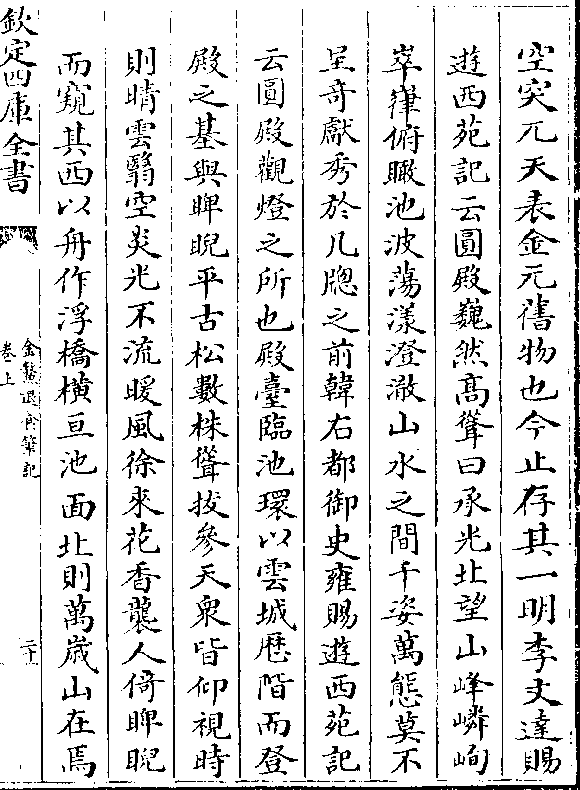 空突兀天表金元舊物也今止存其一明李文達賜
遊西苑記云圓殿巍然高聳曰承光北望山峰嶙峋
崒嵂俯瞰池波蕩漾澄澈山水之間千姿萬態莫不
呈奇獻秀於几牕之前韓右都御史雍賜遊西苑記
云圓殿觀燈之所也殿臺臨池環以雲城厯階而登
殿之基與睥睨平古松數株聳拔參天衆皆仰視時
則晴雲翳空炎光不流暖風徐來花香襲人倚睥睨
而窺其西以舟作浮橋橫亘池面北則萬歲山在焉
欽定四庫全書
金鰲退食筆記
卷上
二十